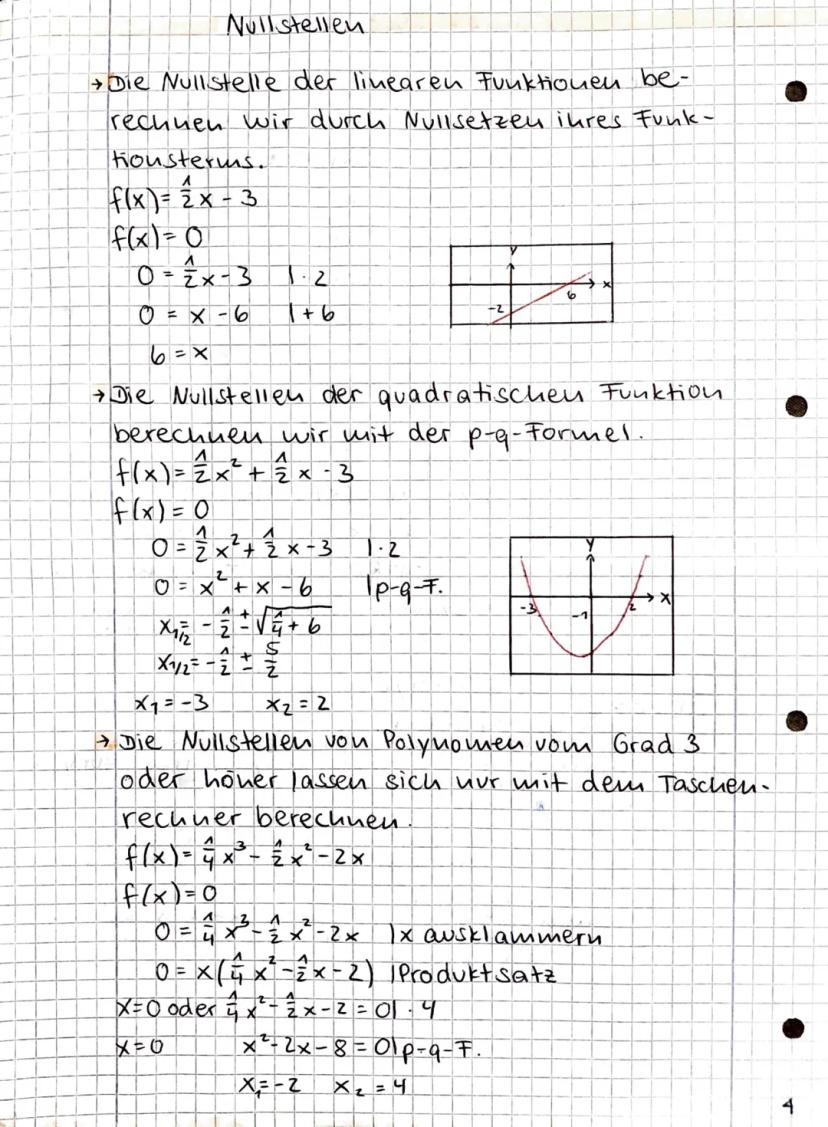 Nullstellen
→ Die Nullstelle der linearen Funktionen be-
rechnen wir durch Nullsetzen ihres Funk-
tionsterms.
f(x) = 1/2 x - 3
f(x) = 0
0 = 1/2 x - 3 | · 2
0 = x - 6 | + 6
6 = x
y
x
6
-2
→ Die Nullstellen der quadratischen Funktion
berechnen wir mit der p-q-Formel.
f(x) = 1/2 x² + 1/2 x - 3
f(x) = 0
0 = 1/2 x² + 1/2 x - 3 | · 2
0 = x² + x - 6 | p-q-F.
x1/2 = - 1/2 ± √(1/4 + 6)
x1/2 = - 1/2 ± 5/2
x₁ = -3 x₂ = 2
y
-3 -1 2 x
→ Die Nullstellen von Polynomen vom Grad 3
oder höher lassen sich nur mit dem Taschen-
rechner berechnen.
f(x) = 1/4 x³ - 1/2 x² - 2x
f(x) = 0
0 = 1/4 x³ - 1/2 x² - 2x | x ausklammern
0 = x(1/4 x² - 1/2 x - 2) | Produktsatz
x = 0 oder 1/4 x² - 1/2 x - 2 = 0 | · 4
x = 0 x² - 2x - 8 = 0 | p-q-F.
x₁ = -2 x₂ = 4
4